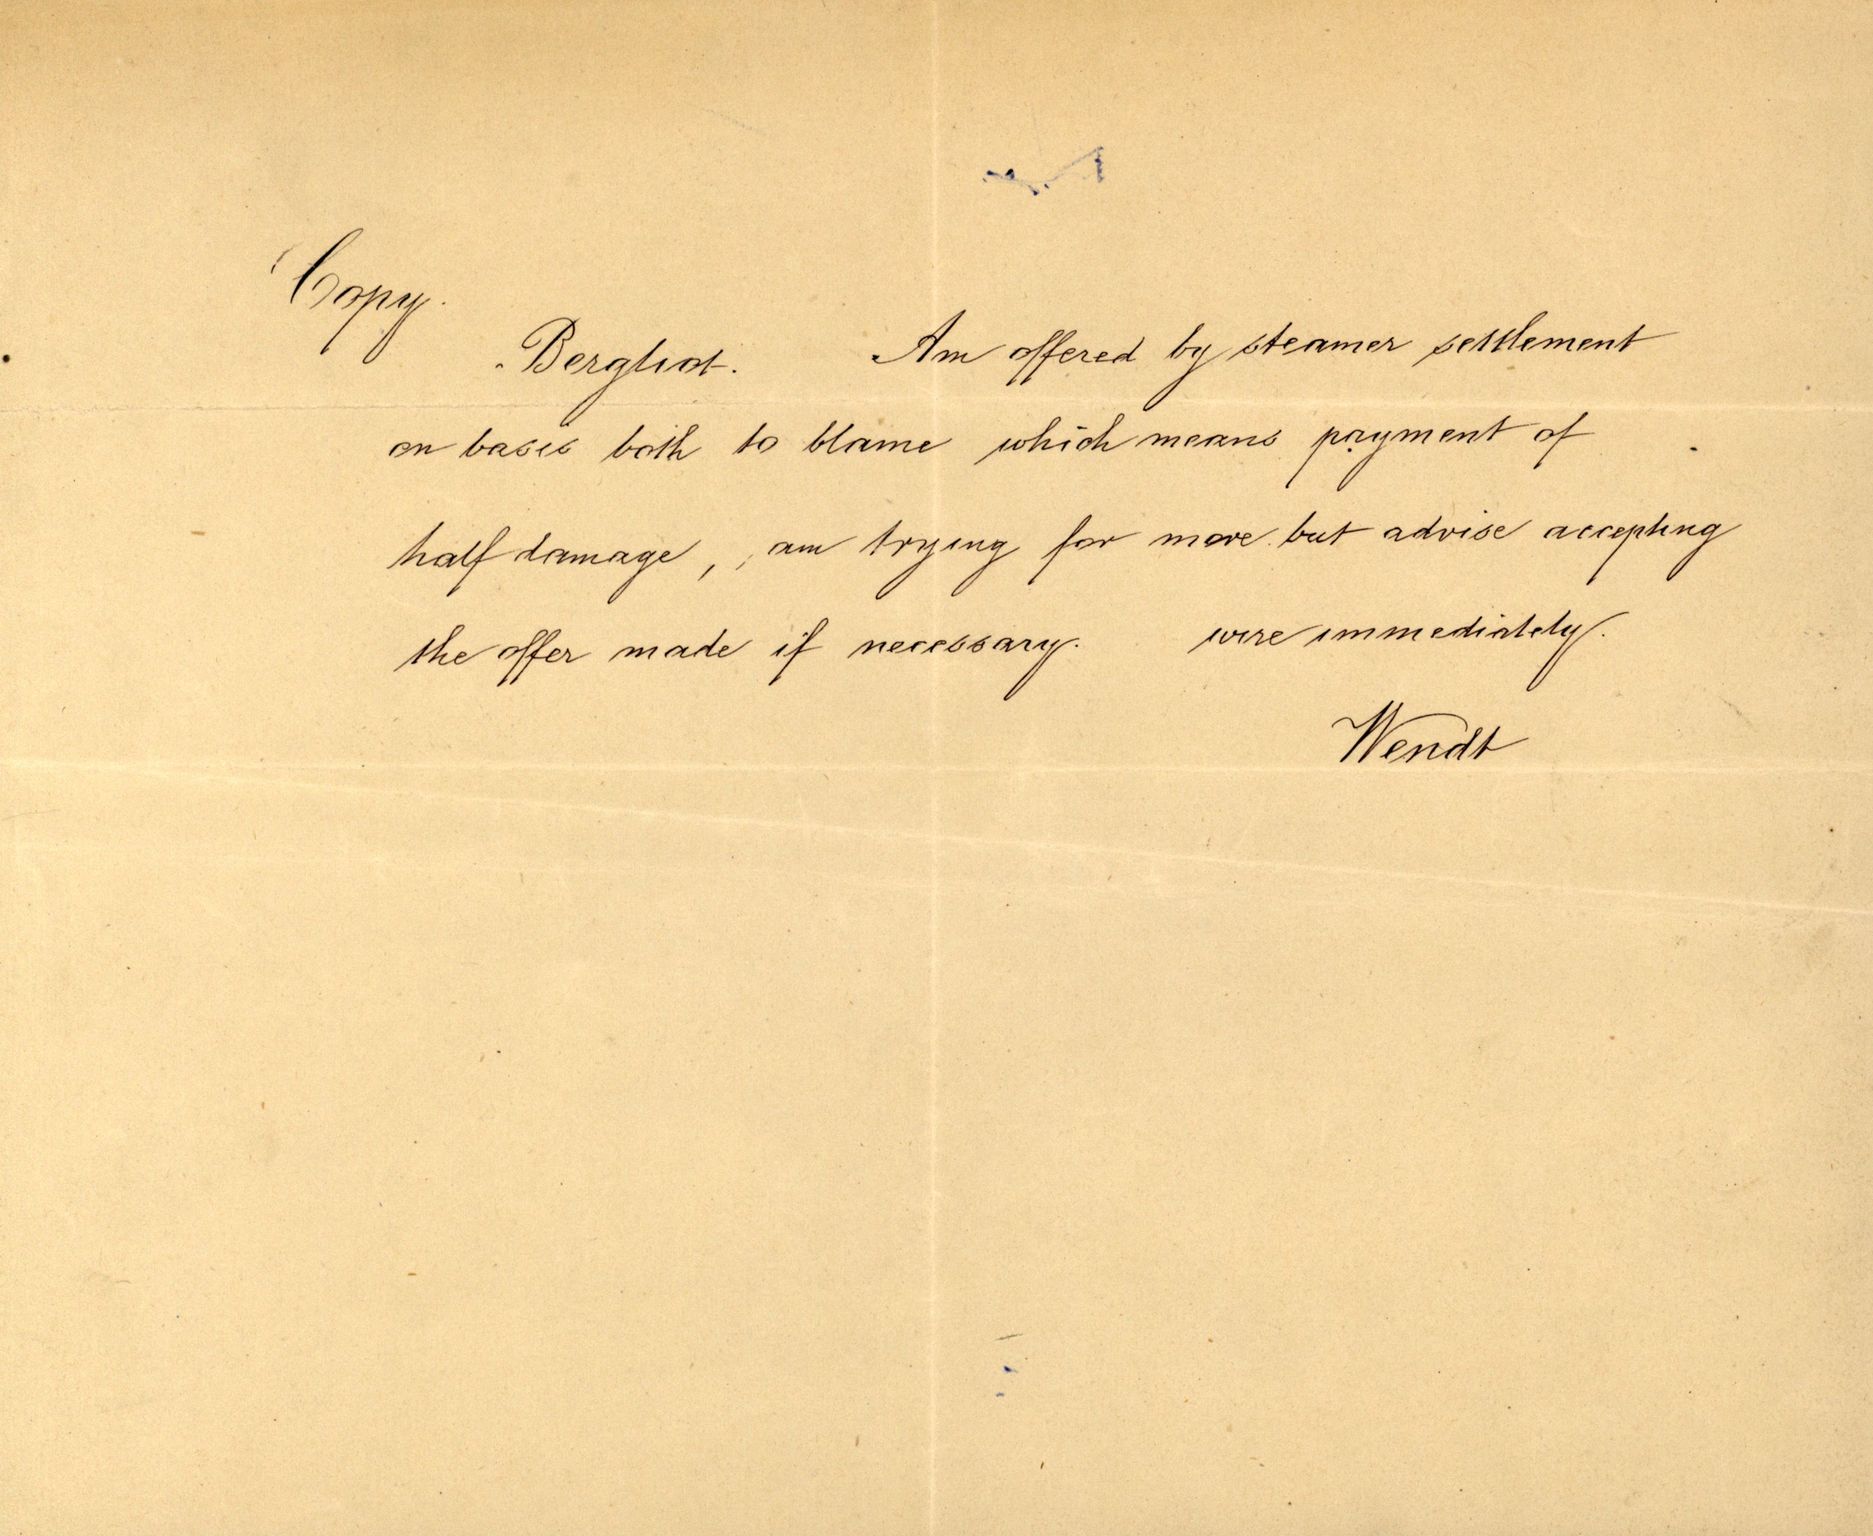 Copy.
Bergliot. Am offered by steamer settlement
on basis both to blame which means payment of
half damage, , am trying for more but advise accepting
the offer made if necessary. wire immediately.
Wendt